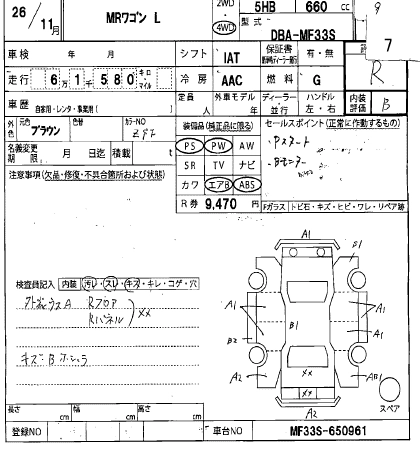 26/11月 MRワゴン L 2WD 4WD 5HB 660 CC
型式 DBA-MF33S 7
車検 年 月 シフト IAT 保証書 有・無 R
走行 6万1千580 キロ・マイル 冷房 AAC 燃料 G
車歴 自家用・レンタ・事業用( ) 定員 人 外車モデル 年 ディーラー 並行 ハンドル 左・右 内装評価 B
外色 元色 ブラウン 色替 カラーNO ZP7 装備品(純正品に限る) セールスポイント(正常に作動するもの)
名義変更期限 月 日迄 積載 t PS PW AW ・Pスタート
注意事項(欠品・修復・不具合箇所および状態) SR TV ナビ ・Bモニター
カワ エアB ABS
R券 9,470 円 Fガラス トビ石・キズ・ヒビ・ワレ・リペア跡
検査員記入 内装 汚レ・スレ・キズ・キレ・コゲ・穴
RフロアA
Rパネル ××
キズ・Bホシュウ
A1
B1
A1 A1
B1
A1 A1
B2
A2 ×× AB1
×× スペア
A2
長さ cm 幅 cm 高さ cm
登録NO 車台NO MF33S-650961